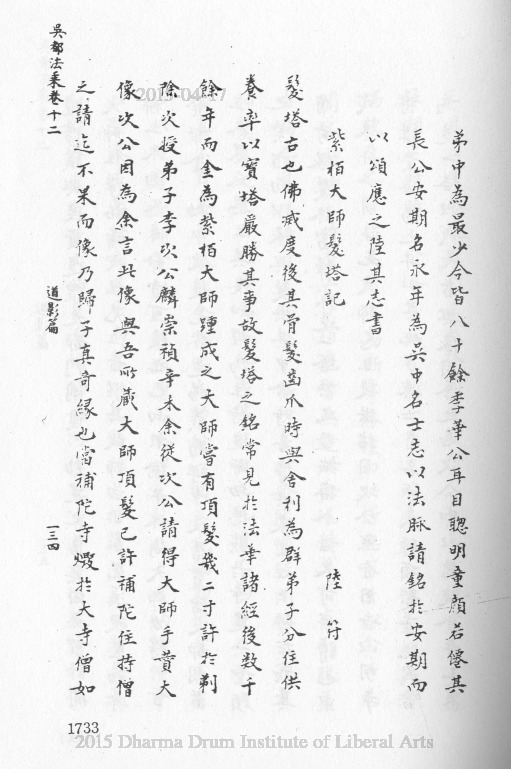 弟中為最少今皆八十餘季華公耳目聰明童顏若僊其
長公安期名永年為吳中名士志以法脉請銘於安期而
以頌應之陸其志書
紫栢大師髮塔記　陸符
髮塔古也佛滅度後其骨髮齒爪時與舍利為群弟子分住供
養率以寶塔嚴勝其事故髮塔之銘常見於法華諸經後数千
餘年而金為紫栢大師踵成之大師嘗有頂髮幾二寸許於剃
除次授弟子李次公麟崇禎辛未余從次公請得大師手蕢大
像次公因為余言此像與吾所藏大師頂髮已許補陀住持僧
之請迄不果而像乃歸子真奇緣也當補陀寺燬於大寺僧如
吳都法乘卷十二
道影篇
一三四
1733
2015-04-17
2015 Dharma Drum Institute of Liberal Arts